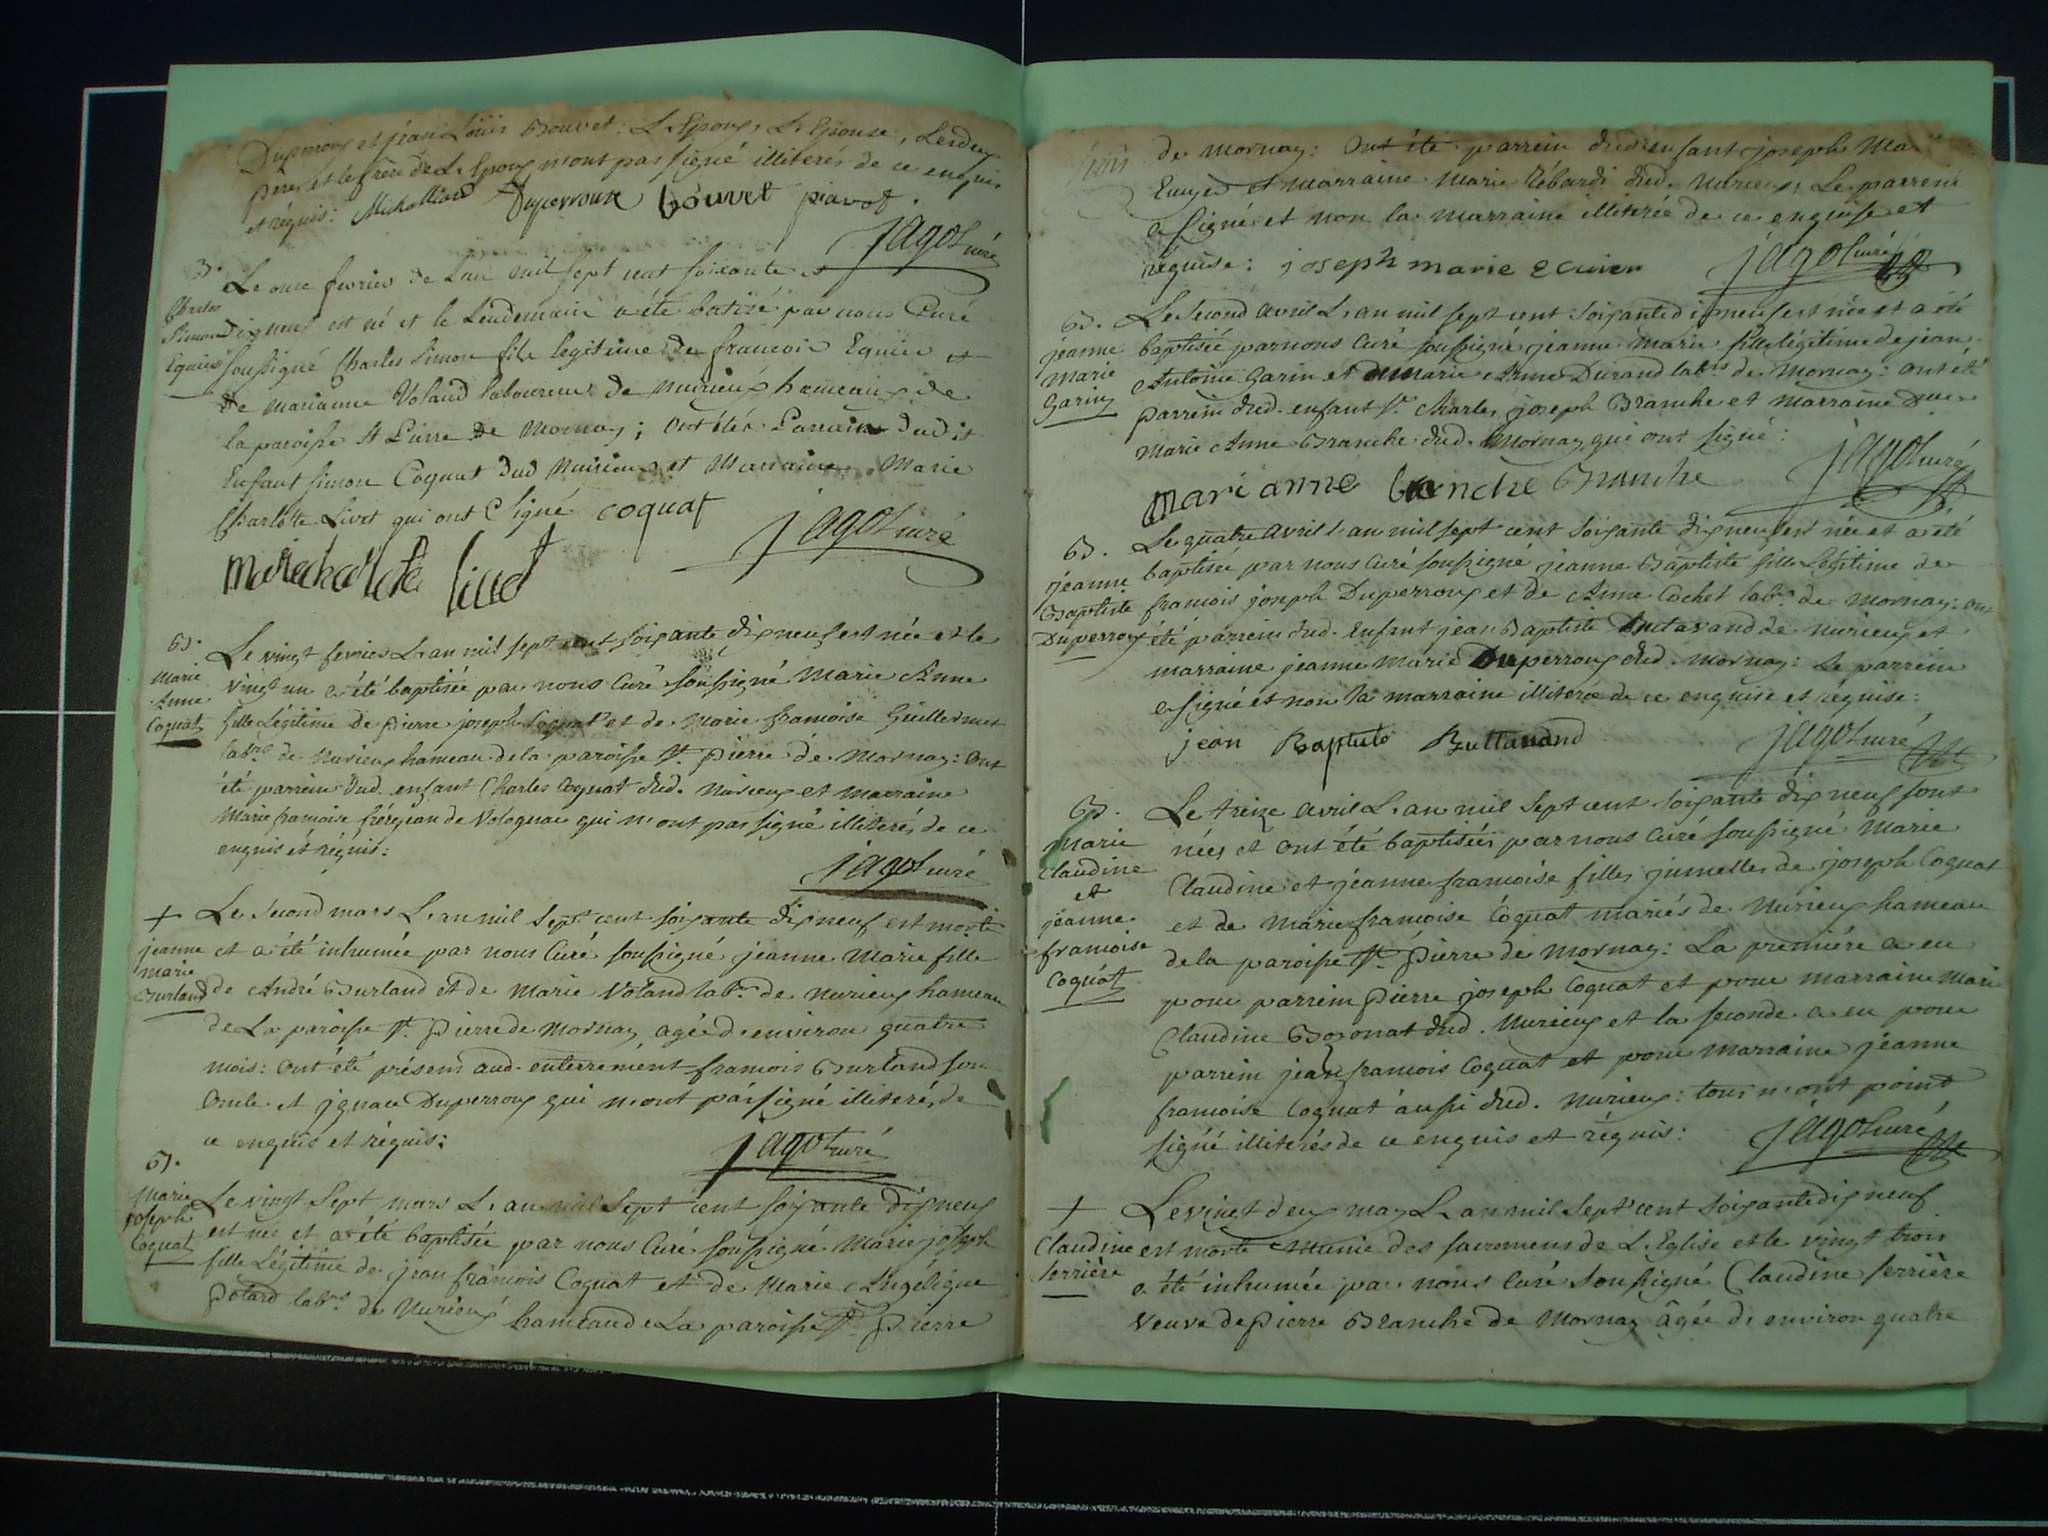 Duperroux et jean Loüis Bouvet: L'Epoux, L'Epouse, Les deux
peres et le frere de L'Epoux n'ont pas signé illiterés de ce enquis
et réquis: Duperroux bouvet piavot
jagot curé
B. Le onze fevrier de L'an mil sept cent soixante et
Charles
Simon dix neuf est né et le Lendemain a été batizé par nous Curé
Equier soussigné Charles Simon fils legitime de francois Equier et
de Marianne Voland laboureurs de Nurieux hameaux de
la paroisse St Pierre de Mornay; ont étés Parrain dudit
Enfant Simon Coquat dud Nurieux et Marraine Marie
Charlotte Livet qui ont Signé coquat
jagot curé
B. Le vingt fevrier L'an mil sept cent soixante dix neuf est née et le
Marie vingt un a été baptisée par nous Curé soussigné Marie Anne
Anne
Coquat fille Légitime de pierre joseph Coquat et de Marie francoise Guillermet
labrs de Nurieux hameau de la paroisse St. pierre de Mornay: ont
été parrein dud. enfant Charles Coquat dud. Nurieux et marraine
Marie francoise de Volognat qui n'ont pas signé illiterés de ce
enquis et réquis:
jagot curé
+ Le Second mars L'an mil sept cent soixante dix neuf est morte
jeanne et a été inhumée par nous Curé soussigné jeanne Marie fille
marie
Burland de André Burland et de Marie Voland labrs de Nurieux hameau
de La paroisse St. pierre de Mornay agée d'environ quatre
mois: ont été présens aud. enterrément francois Burland son
oncle et jgnace Duperroux qui n'ont pas signé illiterés de
ce enquis et réquis:
jagot curé
B.
Marie Le vingt Sept mars L'an mil Sept cent soixante dix neuf
joseph est née et a été baptisée par nous Curé soussigné Marie joseph
Coquat fille Légitime de jean francois Coquat et de Marie Angélique
Potard labrs de Nurieux hameau de La paroisse St. pierre
de Mornay: ont été parrein dud. enfant joseph Ma
et marraine Marie dud. Nurieux: Le parrein
a signé et non la marraine illiterée de ce enquise et
réquise: joseph marie ecuier jagot curé
B. Le Second avril L'an mil sept cent soixante dix neuf est née et a été
jeanne baptisée par nous Curé soussigné jeanne Marie fille légitime de jean
marie Antoine Garin et de Marie Anne Durand labrs de Mornay: ont été
Garin parrein dud. enfant Sr. Charles joseph Branche et marraine Dlle
Marie Anne Branche dud. Mornay qui ont signé:
mari anne branche Branche jagot curé
B. Le quatre avril L'an mil sept cent soixante dix neuf est née et a été
jeanne baptisée par nous Curé soussigné jeanne Baptiste fille Légitime de
Baptiste francois joseph Duperroux et de Anne Cochet labrs de Mornay: ont
Duperroux été parrein dud. Enfant jean Baptiste Buttavand de nurieux et
marraine jeanne Marie Duperroux dud. Mornay: Le parrein
a signé et non la marraine illiterée de ce enquise et réquise:
jean Baptiste Buttavand jagot curé
B. Le treize avril L'an mil Sept cent soixante dix neuf sont
Marie nées et ont été baptisées par nous Curé soussigné Marie
Claudine Claudine et jeanne francoise filles jumelles de joseph Coquat
et
jeanne et de Marie francoise Coquat mariés de Nurieux hameau
francoise de la paroisse St. pierre de Mornay: La premiére a eu
Coquat pour parrein pierre joseph Coquat et pour marraine Marie
Claudine Bozonat dud. Nurieux et la seconde a eu pour
parrein jean francois Coquat et pour marraine jeanne
francoise Coquat aussi dud. Nurieux: tous n'ont point
signé illiterés de ce enquis et réquis: jagot curé
+ Le vingt deux may L'an mil Sept cent soixante dix neuf
Claudine est morte Munie des sacremens de L'Eglise et le vingt trois
Serrière a été inhumée par nous Curé soussigné Claudine Serrière
Veuve de pierre Branche de Mornay agée d'environ quatre